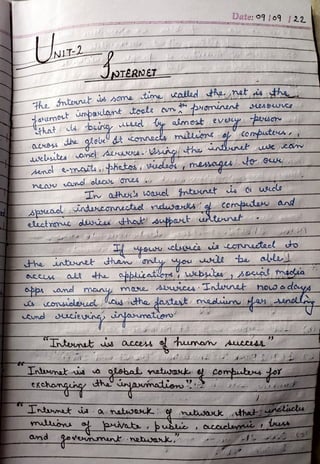 Date: 09/09/22
UNIT-2
INTERNET
The Internet is some time called the net is the
foremost important tools an prominent resource
that is being used by almost every person
across the globe It connects millions of computers,
websites and servers. Using the internet we can
send e-mails, photos, videos, messages to our
near and dear ones.
In other's word Internet is a wide
spread interconnected networks of computers and
electronic devices that support internet.
If your device is connected to
the internet than only you will be able
access all the applications, websites, social media
apps and many more services. Internet nowadays
is considered as the fastest medium for sending
and recieving information
"Internet is access of human success"
"Internet is a global network of computers for
exchanging the information".
"Internet is a network of network that includes
millions of private, public, accademic, buss
and government network."